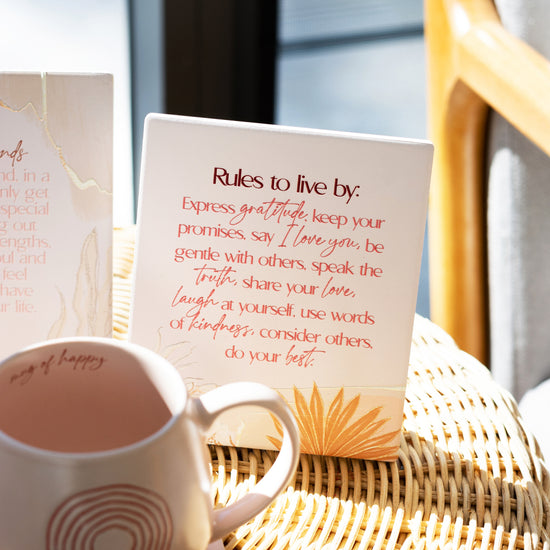 nds
nd, in a
only get
special
g out
engths,
ul and
feel
have
ur life.
Rules to live by:
Express gratitude, keep your
promises, say I love you, be
gentle with others, speak the
truth, share your love,
laugh at yourself, use words
of kindness, consider others,
do your best.
mug of happy